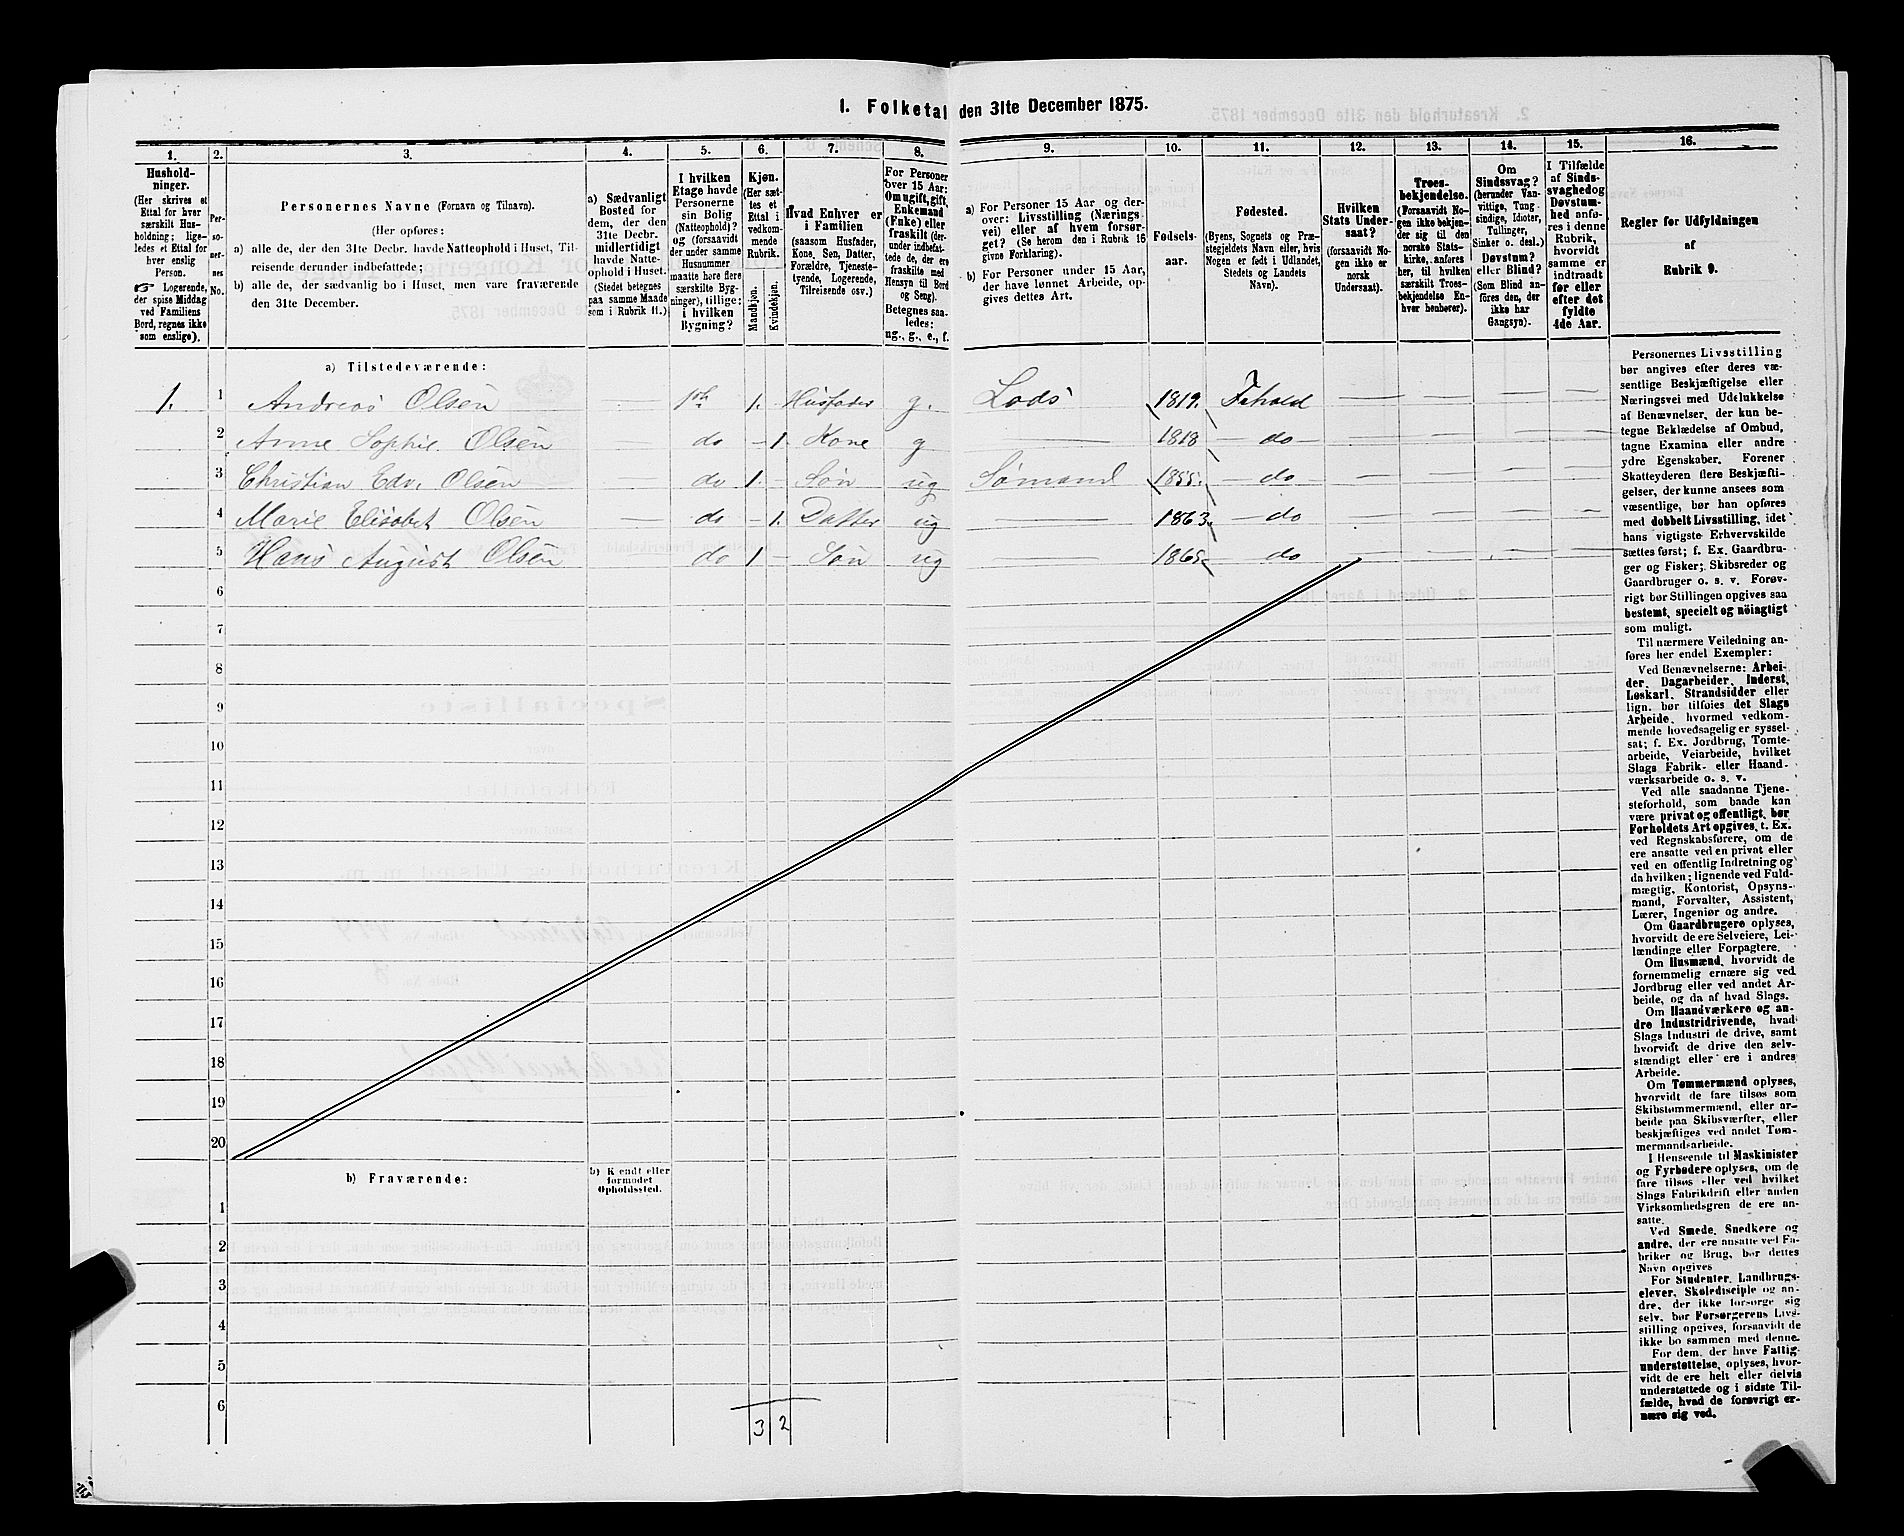 I. Folketal den 31te December 1875.
1. 2. 3. 4. 5. 6. 7. 8. 9. 10. 11. 12. 13. 14. 15. 16.
Hushold-
ninger.
(Her skrives et
Ettal for hver
særskilt Hus-
holdning; lige-
ledes et Ettal for
hver enslig
Person.
☞ Logerende,
der spise Middag
ved Familiens
Bord, regnes ikke
som enslige).
Per-
so-
ner-
nes
No.
Personernes Navne (Fornavn og Tilnavn).
(Her opføres:
a) alle de, der den 31te Decbr. havde Natteophold i Huset, Til-
reisende derunder indbefattede;
b) alle de, der sædvanlig bo i Huset, men vare fraværende
den 31te December.
a) Sædvanligt
Bosted for
dem, der den
31te Decbr.
midlertidigt
havde Natte-
ophold i Huset.
(Stedet betegnes
paa samme Maade
som i Rubrik 11.)
I hvilken
Etage havde
Personerne
sin Bolig
(Natteophold)?
og (forsaavidt
der under samme
Husnummer
maatte høre flere
særskilte Byg-
ninger), tillige:
i hvilken
Bygning?
Kjøn.
(Her sæt-
tes et
Ettal i
vedkom-
mende
Rubrik.
Mandkjøn.
Kvindekjøn.
Hvad Enhver er
i Familien
(saasom Husfader,
Kone, Søn, Datter,
Forældre, Tjeneste-
tyende, Logerende,
Tilreisende osv.)
For Personer
over 15 Aar:
Om ugift, gift,
Enkemand
(Enke) eller
fraskilt (der-
under indbefat-
tede de, der ere
fraskilte med
Hensyn til Bord
og Seng).
Betegnes saa-
ledes:
ug., g., e., f.
a) For Personer 15 Aar og der-
over: Livsstilling (Nærings-
vei) eller af hvem forsør-
get? (Se herom den i Rubrik 16
givne Forklaring).
b) For Personer under 15 Aar,
der have lønnet Arbeide, op-
gives dettes Art.
Fødsels-
aar.
Fødested.
(Byens, Sognets og Præ-
stegjeldets Navn eller, hvis
Nogen er født i Udlandet,
Stedets og Landets
Navn).
Hvilken
Stats Under-
saat?
(forsaavidt No-
gen ikke er
norsk
Undersaat).
Troes-
bekjendelse.
(Forsaavidt No-
gen ikke bekjen-
der sig til den
norske Stats-
kirke, anføres
her, til hvilken
særskilt Troes-
bekjendelse En-
hver henhører).
Om
Sindssvag?
(herunder Van-
vittige, Tung-
sindige, Idioter,
Tullinger,
Sinker o. desl.)
Døvstum?
eller Blind?
(Som Blind an-
føres den, der
ikke har
Gangsyn).
I Tilfælde
af Sinds-
svaghed og
Døvstum-
hed anfø-
res i denne
Rubrik,
hvorvidt
samme er
indtraadt
før eller
efter det
fyldte
4de Aar.
Regler for Udfyldningen
af
Rubrik 9.
a) Tilstedeværende:
1. 1 Andreas Olsen — 1ste 1. Husfader g. Lods 1819. — — — —
2 Anne Sophie Olsen — do — 1. Kone g — 1818 — do — — — — —
3 Christian Edv. Olsen do 1. — Søn ug Sømand 1855. — do — — — — —
4 Marie Elisabet Olsen — do — 1. Datter ug — 1863. — do — — — —
5 Hans August Olsen do 1 — Søn ug — 1865. — do — — — —
6
7
8
9
10
11
12
13
14
15
16
17
18
19
20
b) Fraværende:
b) Kjendt eller
formodet
Opholdssted.
1
2
3
4
5
6
3 2
Personernes Livsstilling
bør angives efter deres væ-
sentlige Beskjæftigelse eller
Næringsvei med Udelukkelse
af Benævnelser, der kun be-
tegne Beklædelse af Ombud,
tagne Examina eller andre
ydre Egenskaber. Forener
Skatteyderen flere Beskjæfti-
gelser, der kunne ansees som
væsentlige, bør han opføres
med dobbelt Livsstilling, idet
hans vigtigste Erhvervskilde
sættes først; f. Ex. Gaardbru-
ger og Fisker; Skibsreder og
Gaardbruger o. s. v. Forøv-
rigt bør Stillingen opgives saa
bestemt, specielt og nöiagtigt
som muligt.
Til nærmere Veiledning an-
føres her endel Exempler:
Ved Benævnelserne: Arbei-
der, Dagarbeider, Inderst,
Løskarl, Strandsidder eller
lign. bør tilføies det Slags
Arbeide, hvormed vedkom-
mende hovedsagelig er syssel-
sat; f. Ex. Jordbrug, Tomte-
arbeide, Veiarbeide, hvilket
Slags Fabrik- eller Haand-
værksarbeide o. s. v.
Ved alle saadanne Tjene-
steforhold, som baade kan
være privat og offentligt, bør
Forholdets Art opgives, t. Ex.
ved Regnskabsførere, om de
ere ansatte ved en privat eller
ved en offentlig Indretning og
da hvilken; lignende ved Fuld-
mægtig, Kontorist, Opsyns-
mand, Forvalter, Assistent,
Lærer, Ingeniør og andre.
Om Gaardbrugere oplyses,
hvorvidt de ere Selveiere, Lei-
lændinge eller Forpagtere.
Om Husmænd, hvorvidt de
fornemmelig ernære sig ved
Jordbrug eller ved andet Ar-
beide, og da af hvad Slags.
Om Haandværkere og an-
dre Industridrivende, hvad
Slags Industri de drive, samt
hvorvidt de drive den selv-
stændigt eller ere i andres
Arbeide.
Om Tømmermænd oplyses,
hvorvidt de fare tilsøs som
Skibstømmermænd, eller ar-
beide paa Skibsværfter, eller
beskjæftiges ved andet Tøm-
mermandsarbeide.
I Henseende til Maskinister
og Fyrbødere oplyses, om de
fare tilsøs eller ved hvilket
Slags Fabrikdrift eller anden
Virksomhedsgren de ere an-
satte.
Ved Smede, Snedkere og
andre, der ere ansatte ved Fa-
briker og Brug, bør dettes
Navn opgives
For Studenter, Landbrugs-
elever, Skoledisciple og an-
dre, der ikke forsørge sig
selv, bør Forsørgerens Livs-
stilling opgives, forsaavidt de
ikke bo sammen med denne.
For dem, der have Fattig-
understøttelse, oplyses, hvor-
vidt de ere helt eller delvis
understøttede og i sidste Til-
fælde, hvad de forøvrigt er-
nære sig ved.